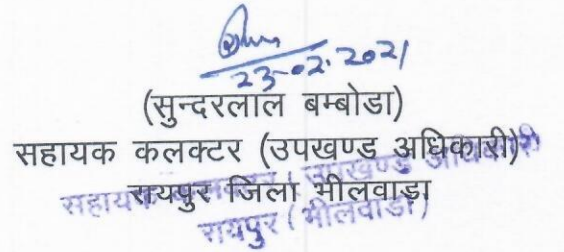 23-02-2021
(सुन्दरलाल बम्बोडा)
सहायक कलक्टर (उपखण्ड अधिकारी)
रायपुर जिला भीलवाड़ा
सहायक कलक्टर (उपखण्ड अधिकारी)
रायपुर (भीलवाडा)